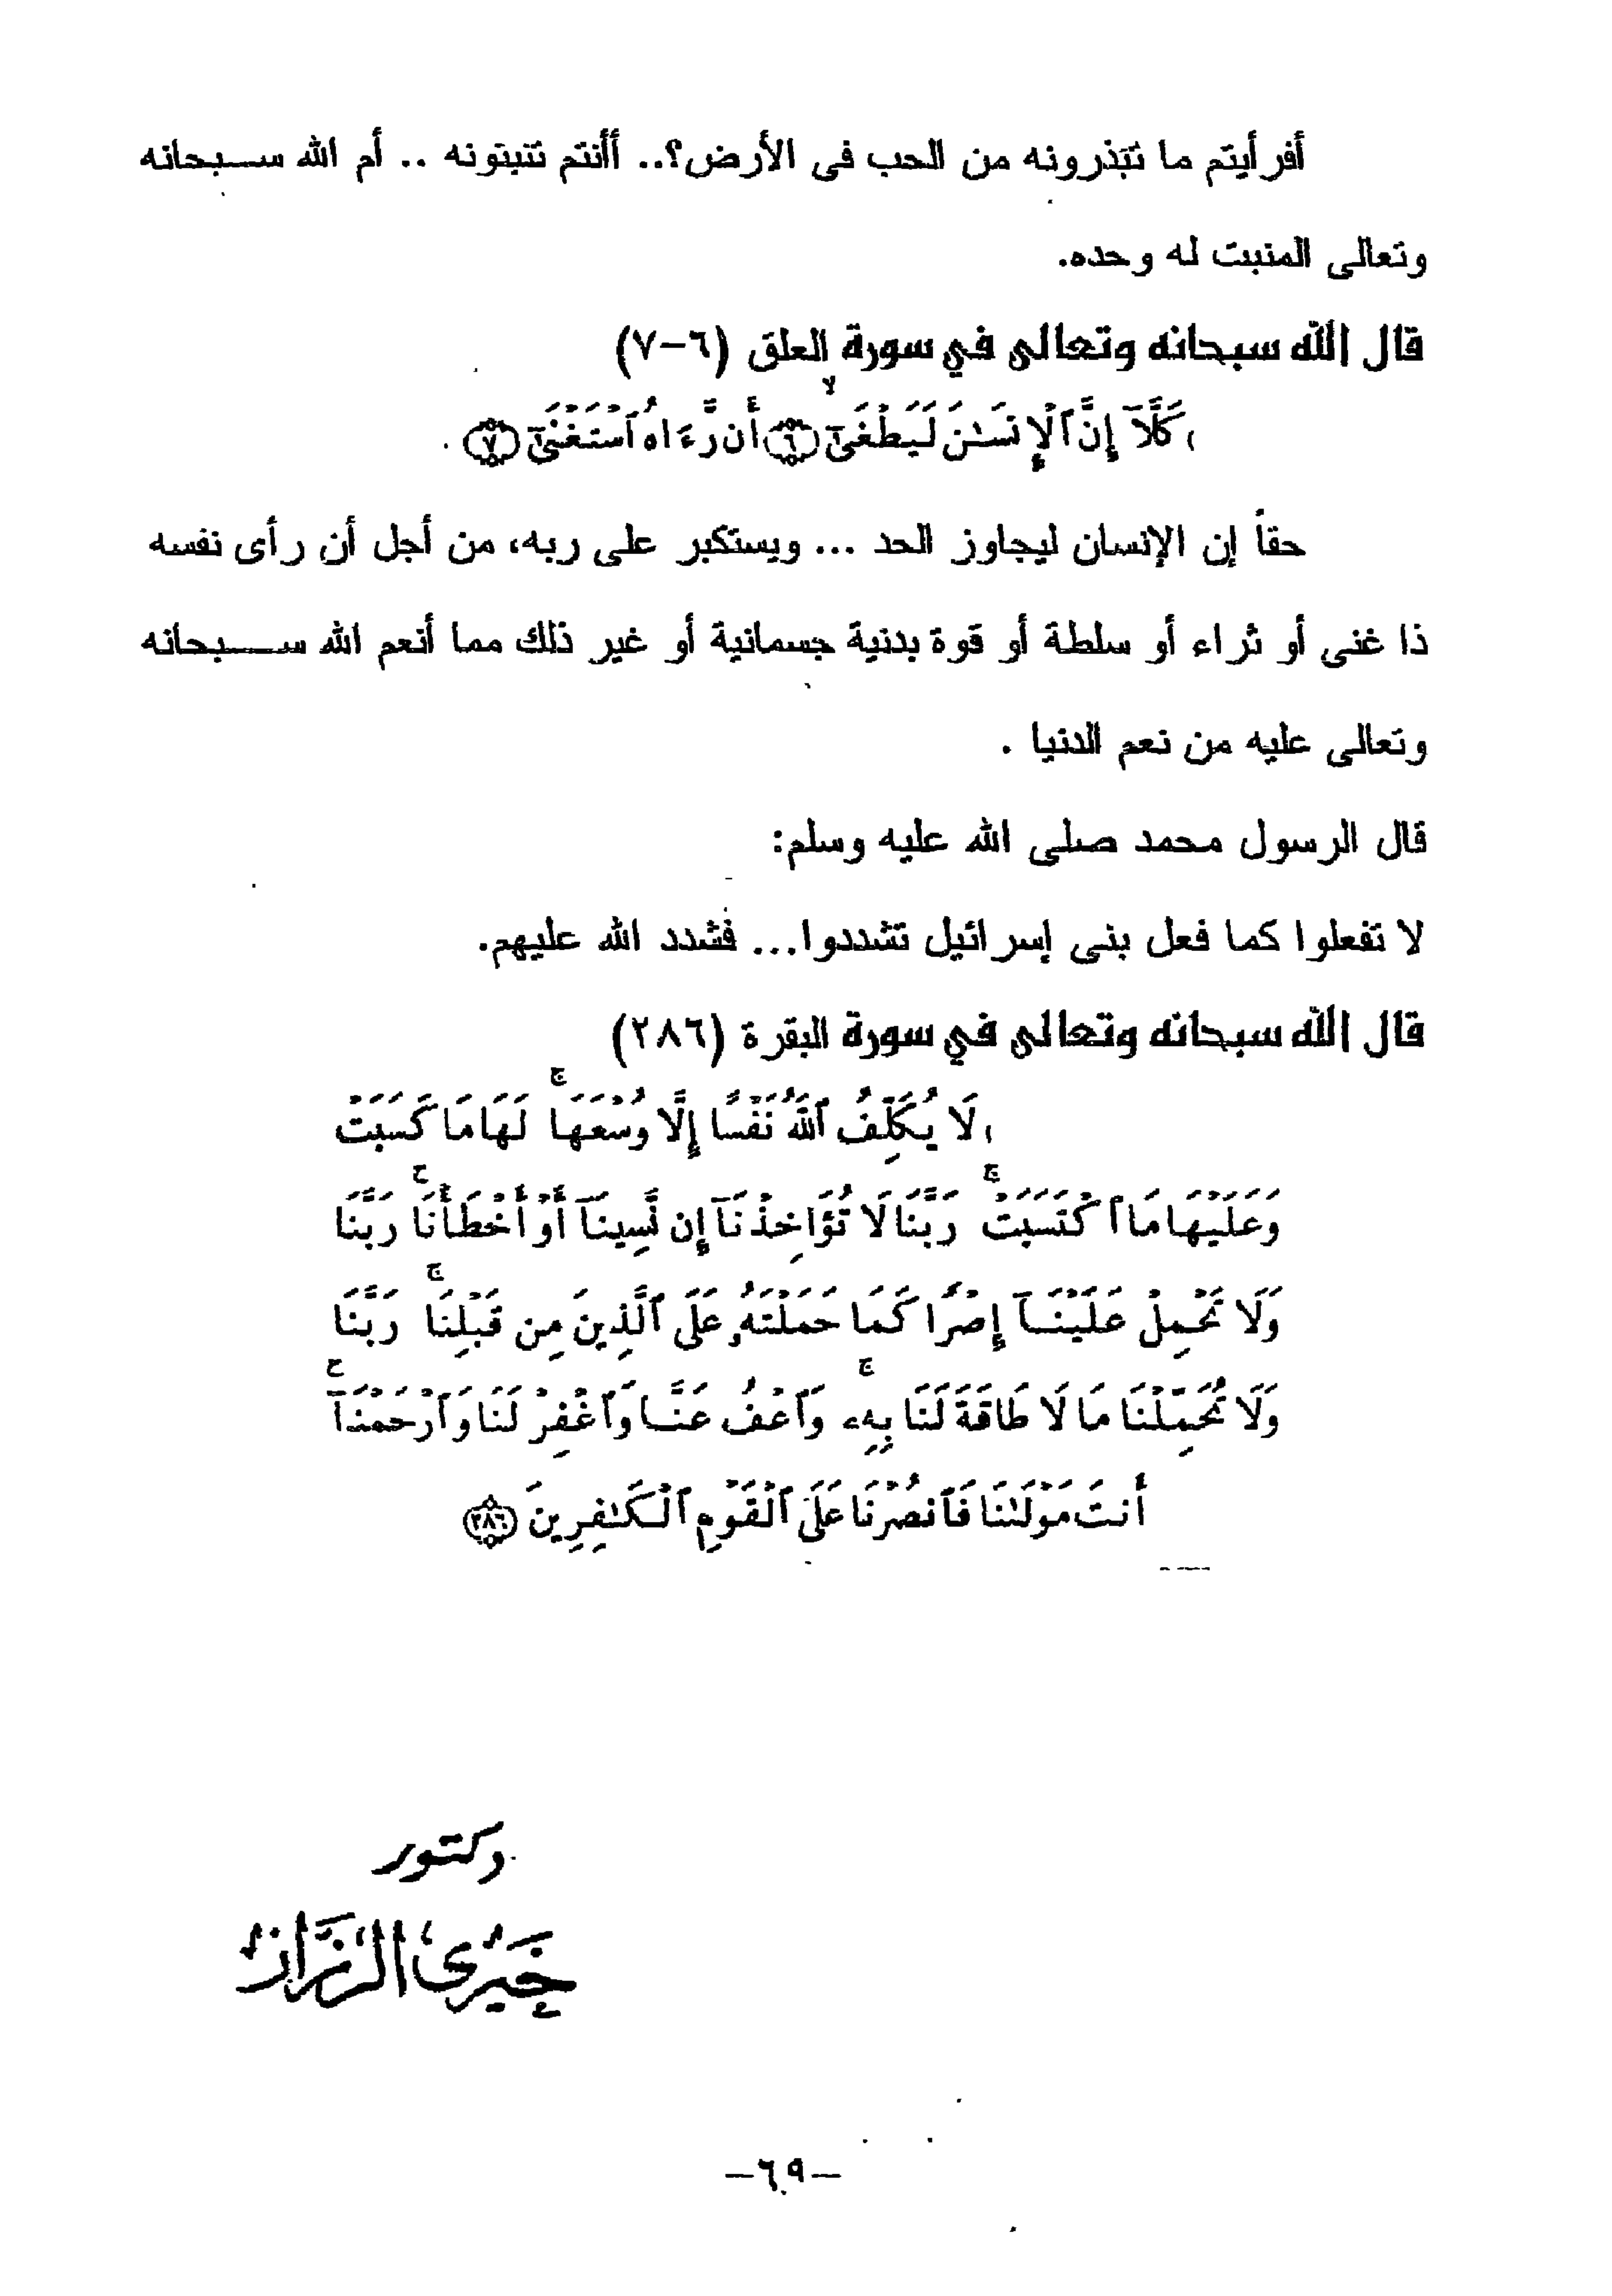 أفرأيتم ما تبذرونه من الحب فى الأرض؟.. أأنتم تنبتونه .. أم الله سبحانه
وتعالى المنبت له وحده.
قال الله سبحانه وتعالى في سورة العلق (٦-٧)
كَلَّآ إِنَّ ٱلْإِنسَـٰنَ لَيَطْغَىٰٓ ۙ ٦ أَن رَّءَاهُ ٱسْتَغْنَىٰٓ ٧
حقاً إن الإنسان ليجاوز الحد ... ويستكبر على ربه، من أجل أن رأى نفسه
ذا غنى أو ثراء أو سلطة أو قوة بدنية جسمانية أو غير ذلك مما أنعم الله سبحانه
وتعالى عليه من نعم الدنيا .
قال الرسول محمد صلى الله عليه وسلم:
لا تفعلوا كما فعل بنى إسرائيل تشددوا... فشدد الله عليهم.
قال الله سبحانه وتعالى في سورة البقرة (٢٨٦)
لَا يُكَلِّفُ ٱللَّهُ نَفْسًا إِلَّا وُسْعَهَا ۚ لَهَا مَا كَسَبَتْ
وَعَلَيْهَا مَا ٱكْتَسَبَتْ ۗ رَبَّنَا لَا تُؤَاخِذْنَآ إِن نَّسِينَآ أَوْ أَخْطَأْنَا ۚ رَبَّنَا
وَلَا تَحْمِلْ عَلَيْنَآ إِصْرًا كَمَا حَمَلْتَهُۥ عَلَى ٱلَّذِينَ مِن قَبْلِنَا ۚ رَبَّنَا
وَلَا تُحَمِّلْنَا مَا لَا طَاقَةَ لَنَا بِهِۦ ۖ وَٱعْفُ عَنَّا وَٱغْفِرْ لَنَا وَٱرْحَمْنَآ ۚ
أَنتَ مَوْلَىٰنَا فَٱنصُرْنَا عَلَى ٱلْقَوْمِ ٱلْكَـٰفِرِينَ ٢٨٦
دكتور
خَيرى الرزَّاز
-٦٩-